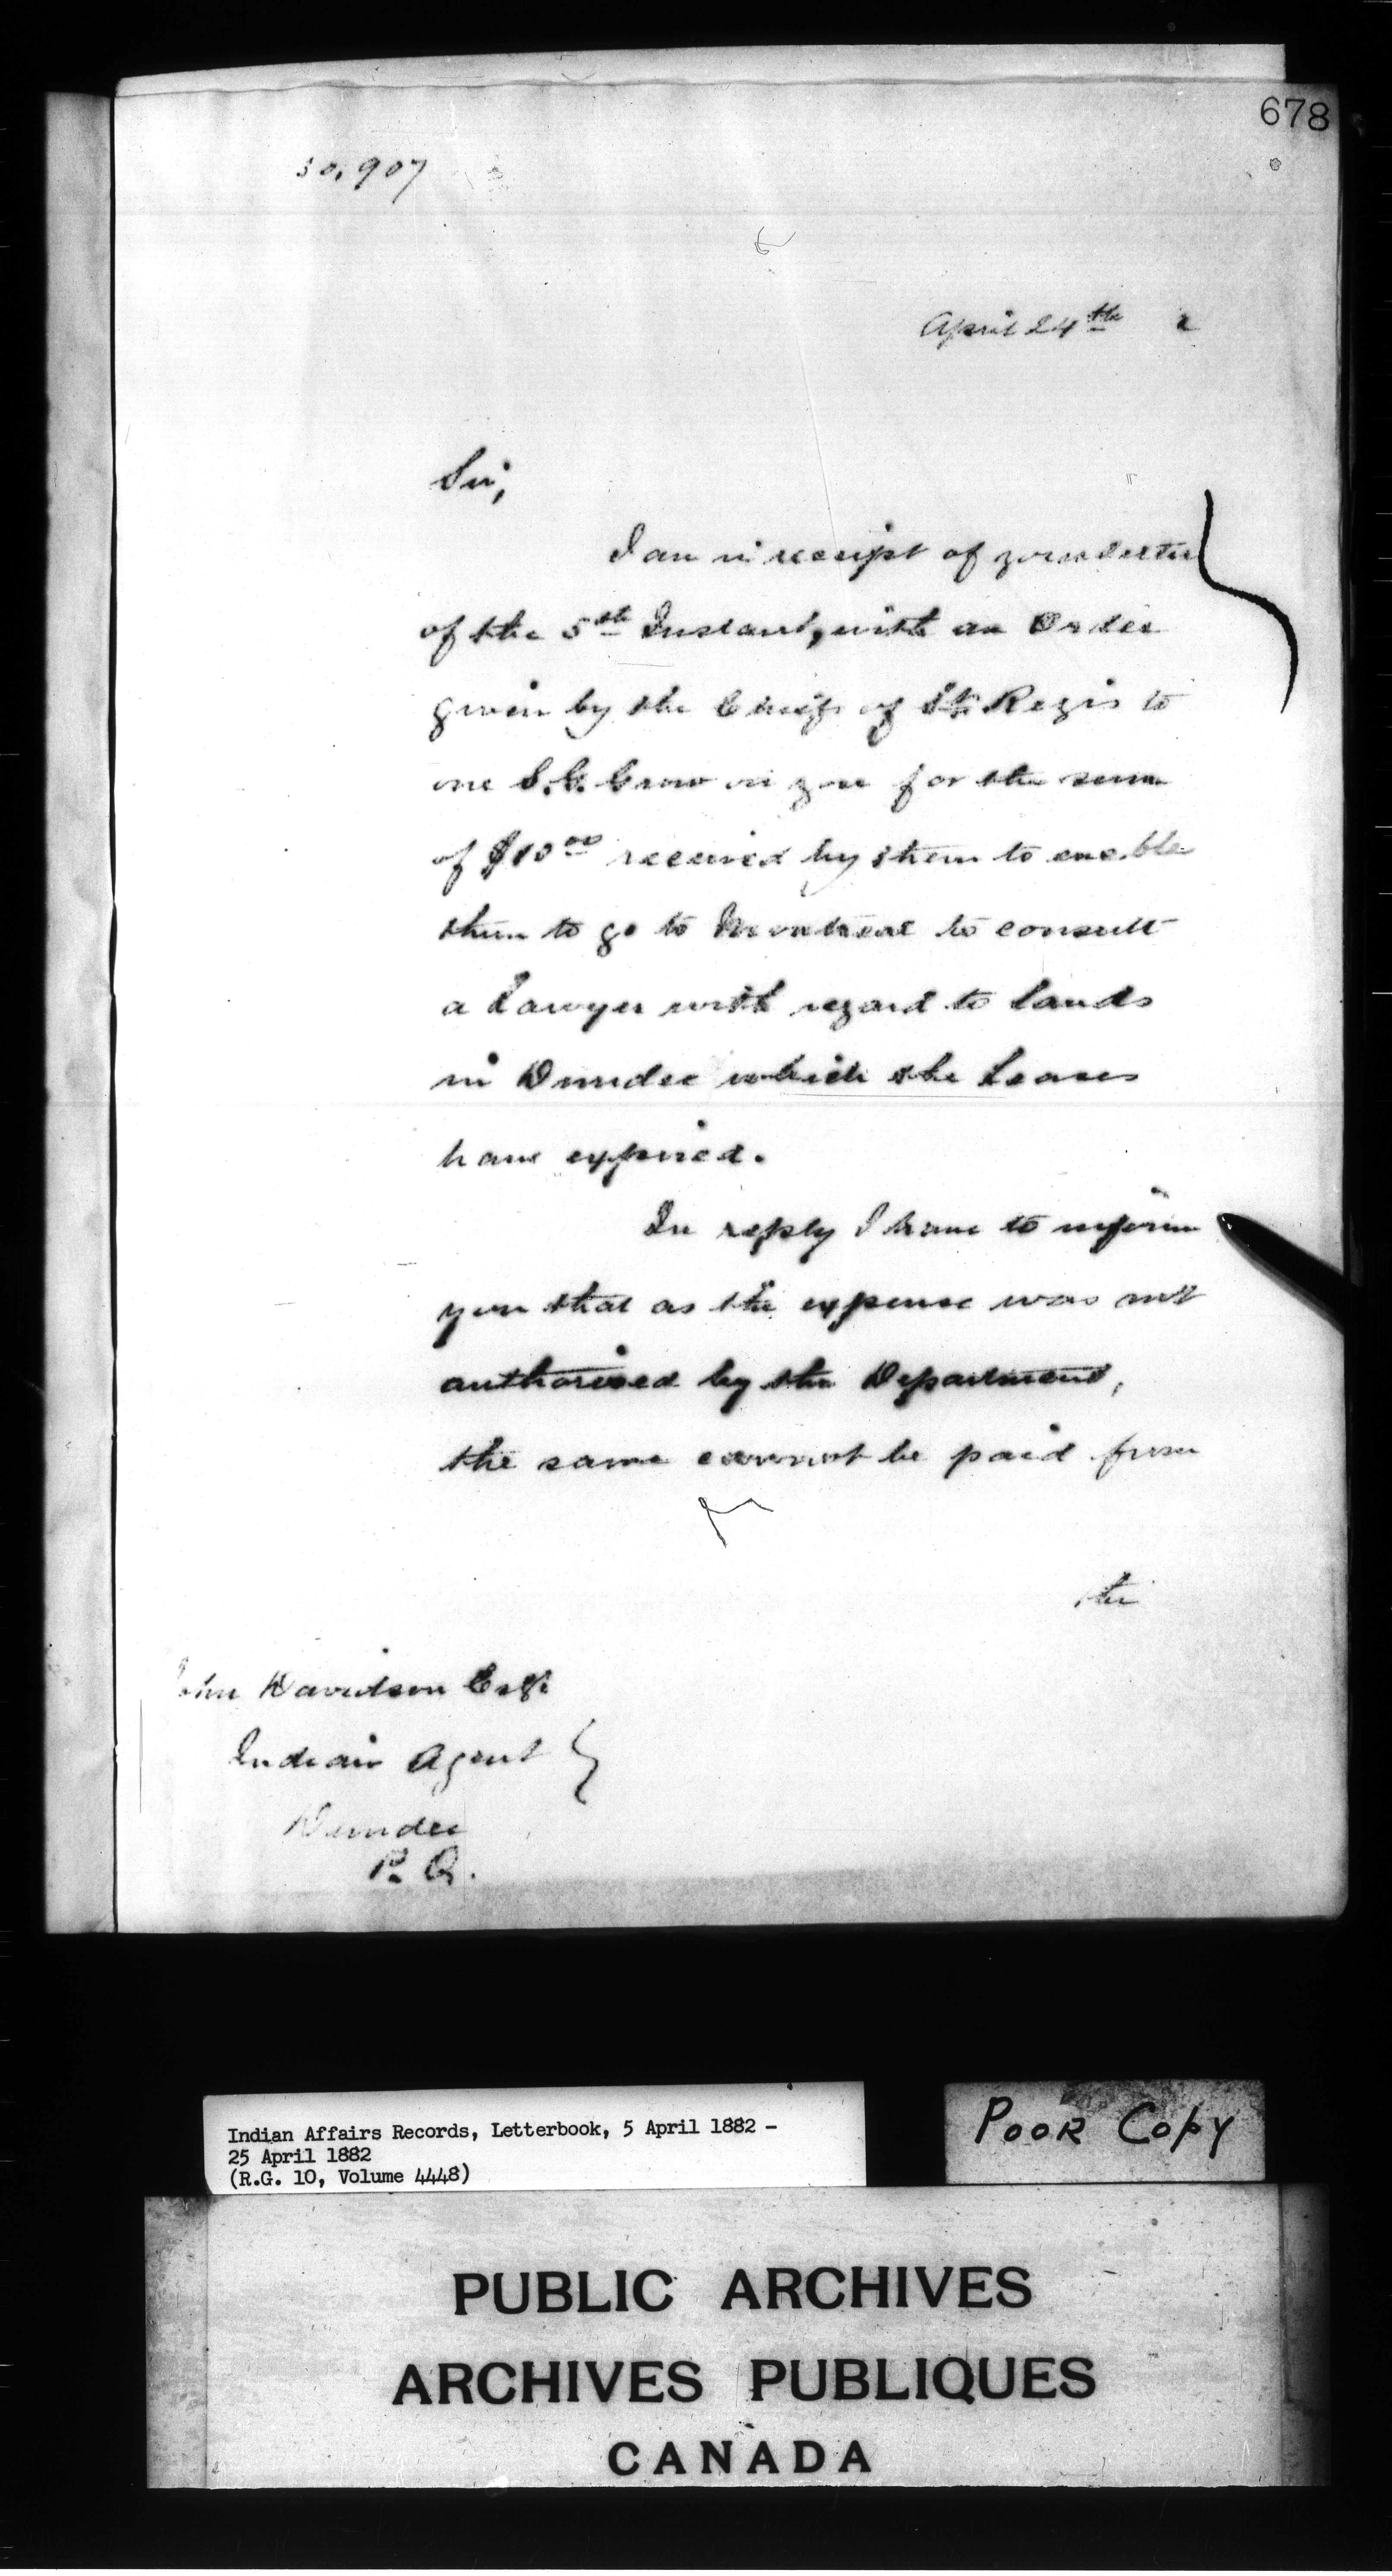 678
30,907
April 24th 2
Sir,
I am in receipt of your letter
of the 5th Instant, with an Order
given by the Chiefs of St. Regis to
one S. G. Grow on you for the sum
of $10.00 received by them to enable
them to go to Montreal to consult
a Lawyer with regard to lands
in Dundee which the Leases
have expired.
In reply I have to inform
you that as the expense was not
authorised by the Department,
the same cannot be paid from
the
John Davidson Esqr
Indian Agent
Dundee
P. Q.
Indian Affairs Records, Letterbook, 5 April 1882 -
25 April 1882
(R.G. 10, Volume 4448)
POOR COPY
PUBLIC ARCHIVES
ARCHIVES PUBLIQUES
CANADA